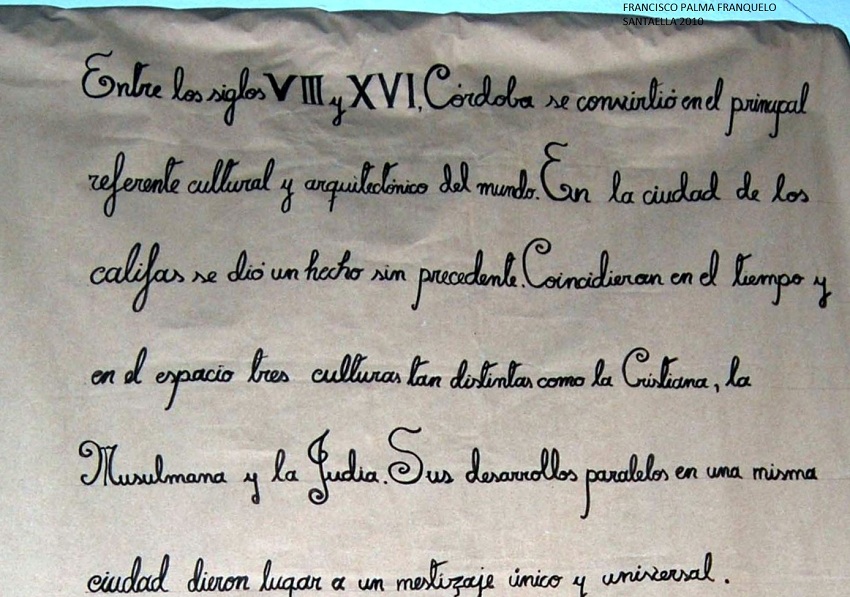 FRANCISCO PALMA FRANQUELO
SANTAELLA 2010
Entre los siglos VIII y XVI, Córdoba se convirtió en el principal
referente cultural y arquitectónico del mundo. En la ciudad de los
califas se dió un hecho sin precedente. Coincidieron en el tiempo y
en el espacio tres culturas tan distintas como la Cristiana, la
Musulmana y la Judia. Sus desarrollos paralelos en una misma
ciudad dieron lugar a un mestizaje único y universal.